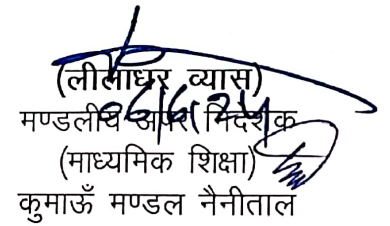 (लीलाधर व्यास)
06/6/24
मण्डलीय अपर निदेशक
(माध्यमिक शिक्षा)
कुमाऊँ मण्डल नैनीताल